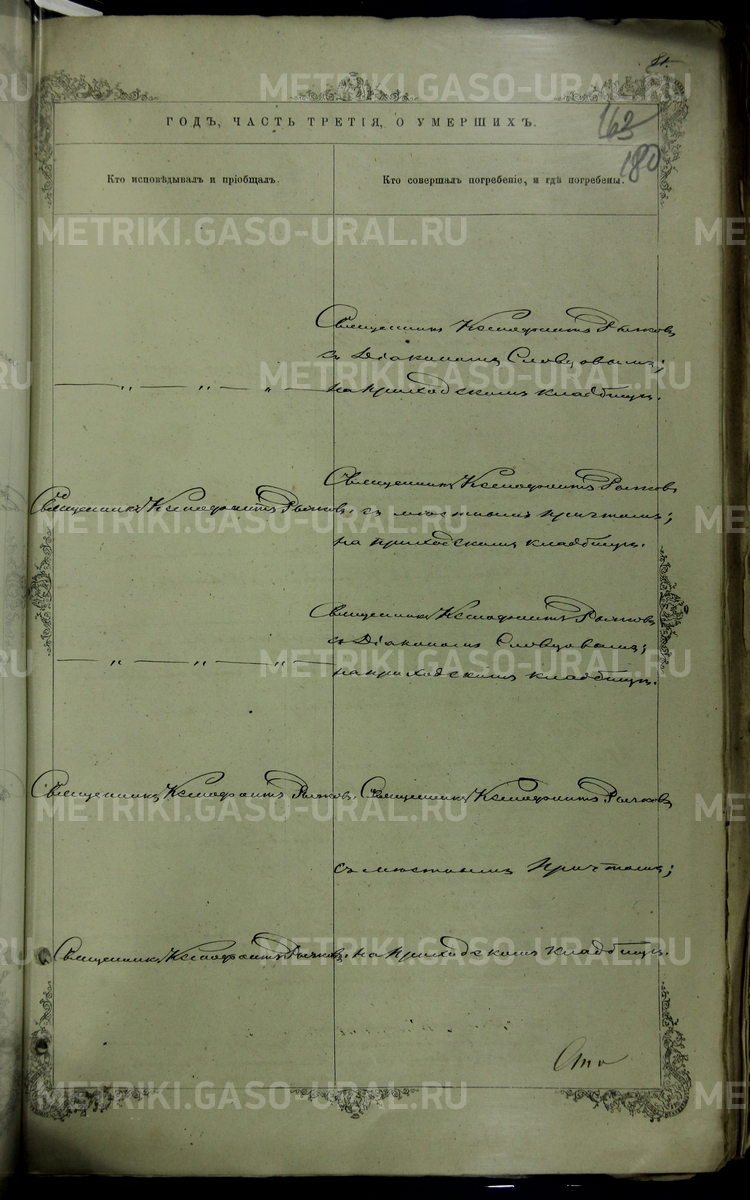 81.
163
180
ГОДЪ, ЧАСТЬ ТРЕТІЯ, О УМЕРШИХЪ.
Кто исповѣдывалъ и пріобщалъ.
Кто совершалъ погребеніе, и гдѣ погребены.
Священникъ Ксенофонтъ Рычковъ
съ Діакономъ Словцовымъ;
— „ — „ — „ — на приходскомъ кладбищѣ.
Священникъ Ксенофонтъ Рычковъ
Священникъ Ксенофонтъ Рычковъ. съ мѣстнымъ причтомъ;
на приходскомъ кладбищѣ.
Священникъ Ксенофонтъ Рычковъ
съ Діакономъ Словцовымъ;
— „ — „ — „ — на приходскомъ кладбищѣ.
Священникъ Ксенофонтъ Рычковъ. Священникъ Ксенофонтъ Рычковъ
съ мѣстнымъ причтомъ;
Священникъ Ксенофонтъ Рычковъ. на приходскомъ кладбищѣ.
METRIKI.GASO-URAL.RU